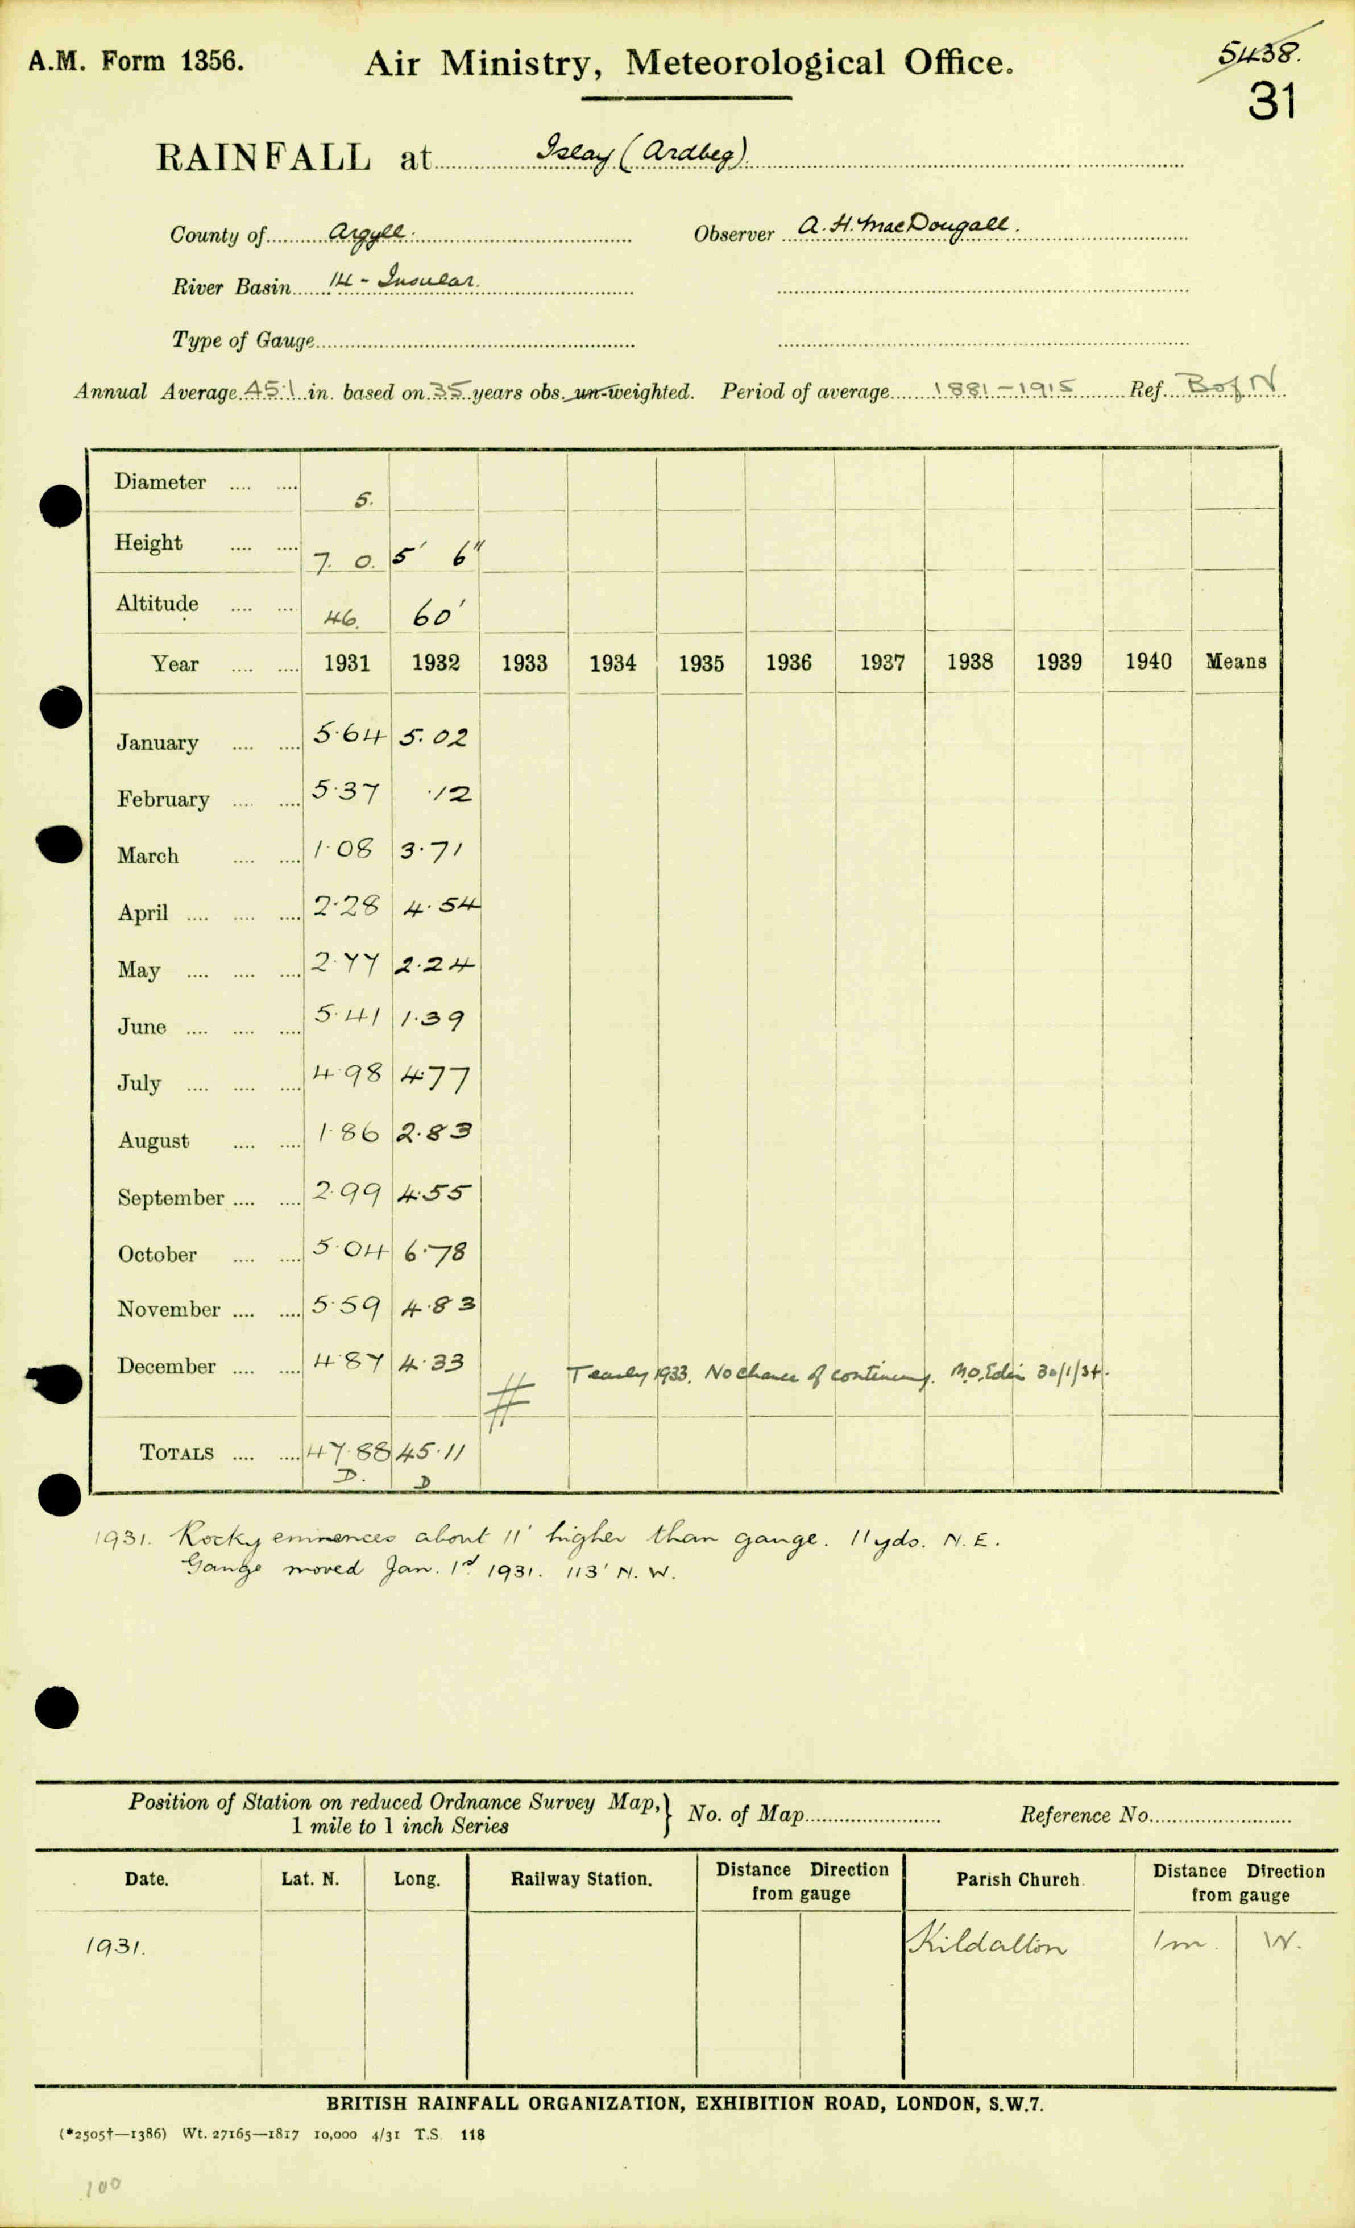 A.M. Form 1356.
Air Ministry, Meteorological Office.
5438.
31
RAINFALL at Islay (Ardbeg).
County of Argyll. Observer A. H. MacDougall.
River Basin 14 - Insular.
Type of Gauge
Annual Average 45.1 in. based on 35 years obs. un-weighted. Period of average 1881-1915 Ref. B of N
Diameter .... .... 5.
Height .... .... 7. 0. 5' 6"
Altitude .... .... 46. 60'
Year .... .... 1931 1932 1933 1934 1935 1936 1937 1938 1939 1940 Means
January .... .... 5.64 5.02
February .... .... 5.37 .12
March .... .... 1.08 3.71
April .... .... .... 2.28 4.54
May .... .... .... 2.77 2.24
June .... .... .... 5.41 1.39
July .... .... .... 4.98 4.77
August .... .... 1.86 2.83
September .... .... 2.99 4.55
October .... .... 5.04 6.78
November .... .... 5.59 4.83
December .... .... 4.87 4.33
# T early 1933. No chance of continuing. M.O. Edin 30/1/34.
TOTALS .... .... 47.88 45.11
D. D
1931. Rocky eminences about 11' higher than gauge. 11 yds. N.E.
Gauge moved Jan. 1st 1931. 113' N.W.
Position of Station on reduced Ordnance Survey Map, } No. of Map Reference No.
1 mile to 1 inch Series
Date. Lat. N. Long. Railway Station. Distance Direction from gauge Parish Church. Distance Direction from gauge
1931. Kildalton 1m. W.
BRITISH RAINFALL ORGANIZATION, EXHIBITION ROAD, LONDON, S.W.7.
(*2505†—1386) Wt. 27165—1817 10,000 4/31 T.S. 118
100